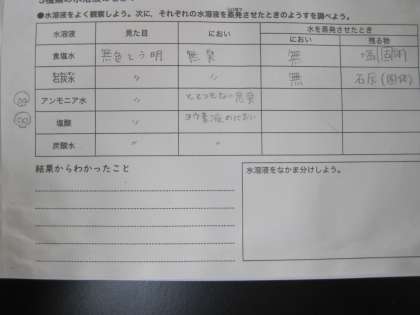 ●水溶液をよく観察しよう。次に、それぞれの水溶液を蒸発させたときのようすを調べよう。
水溶液 見た目 におい 水を蒸発させたとき
におい 残る物
食塩水 無色とう明 無臭 無 塩(固体)
石灰水 〃 〃 無 石灰(固体)
アンモニア水 〃
塩酸 〃
炭酸水 〃 〃
結果からわかったこと
水溶液をなかま分けしよう。